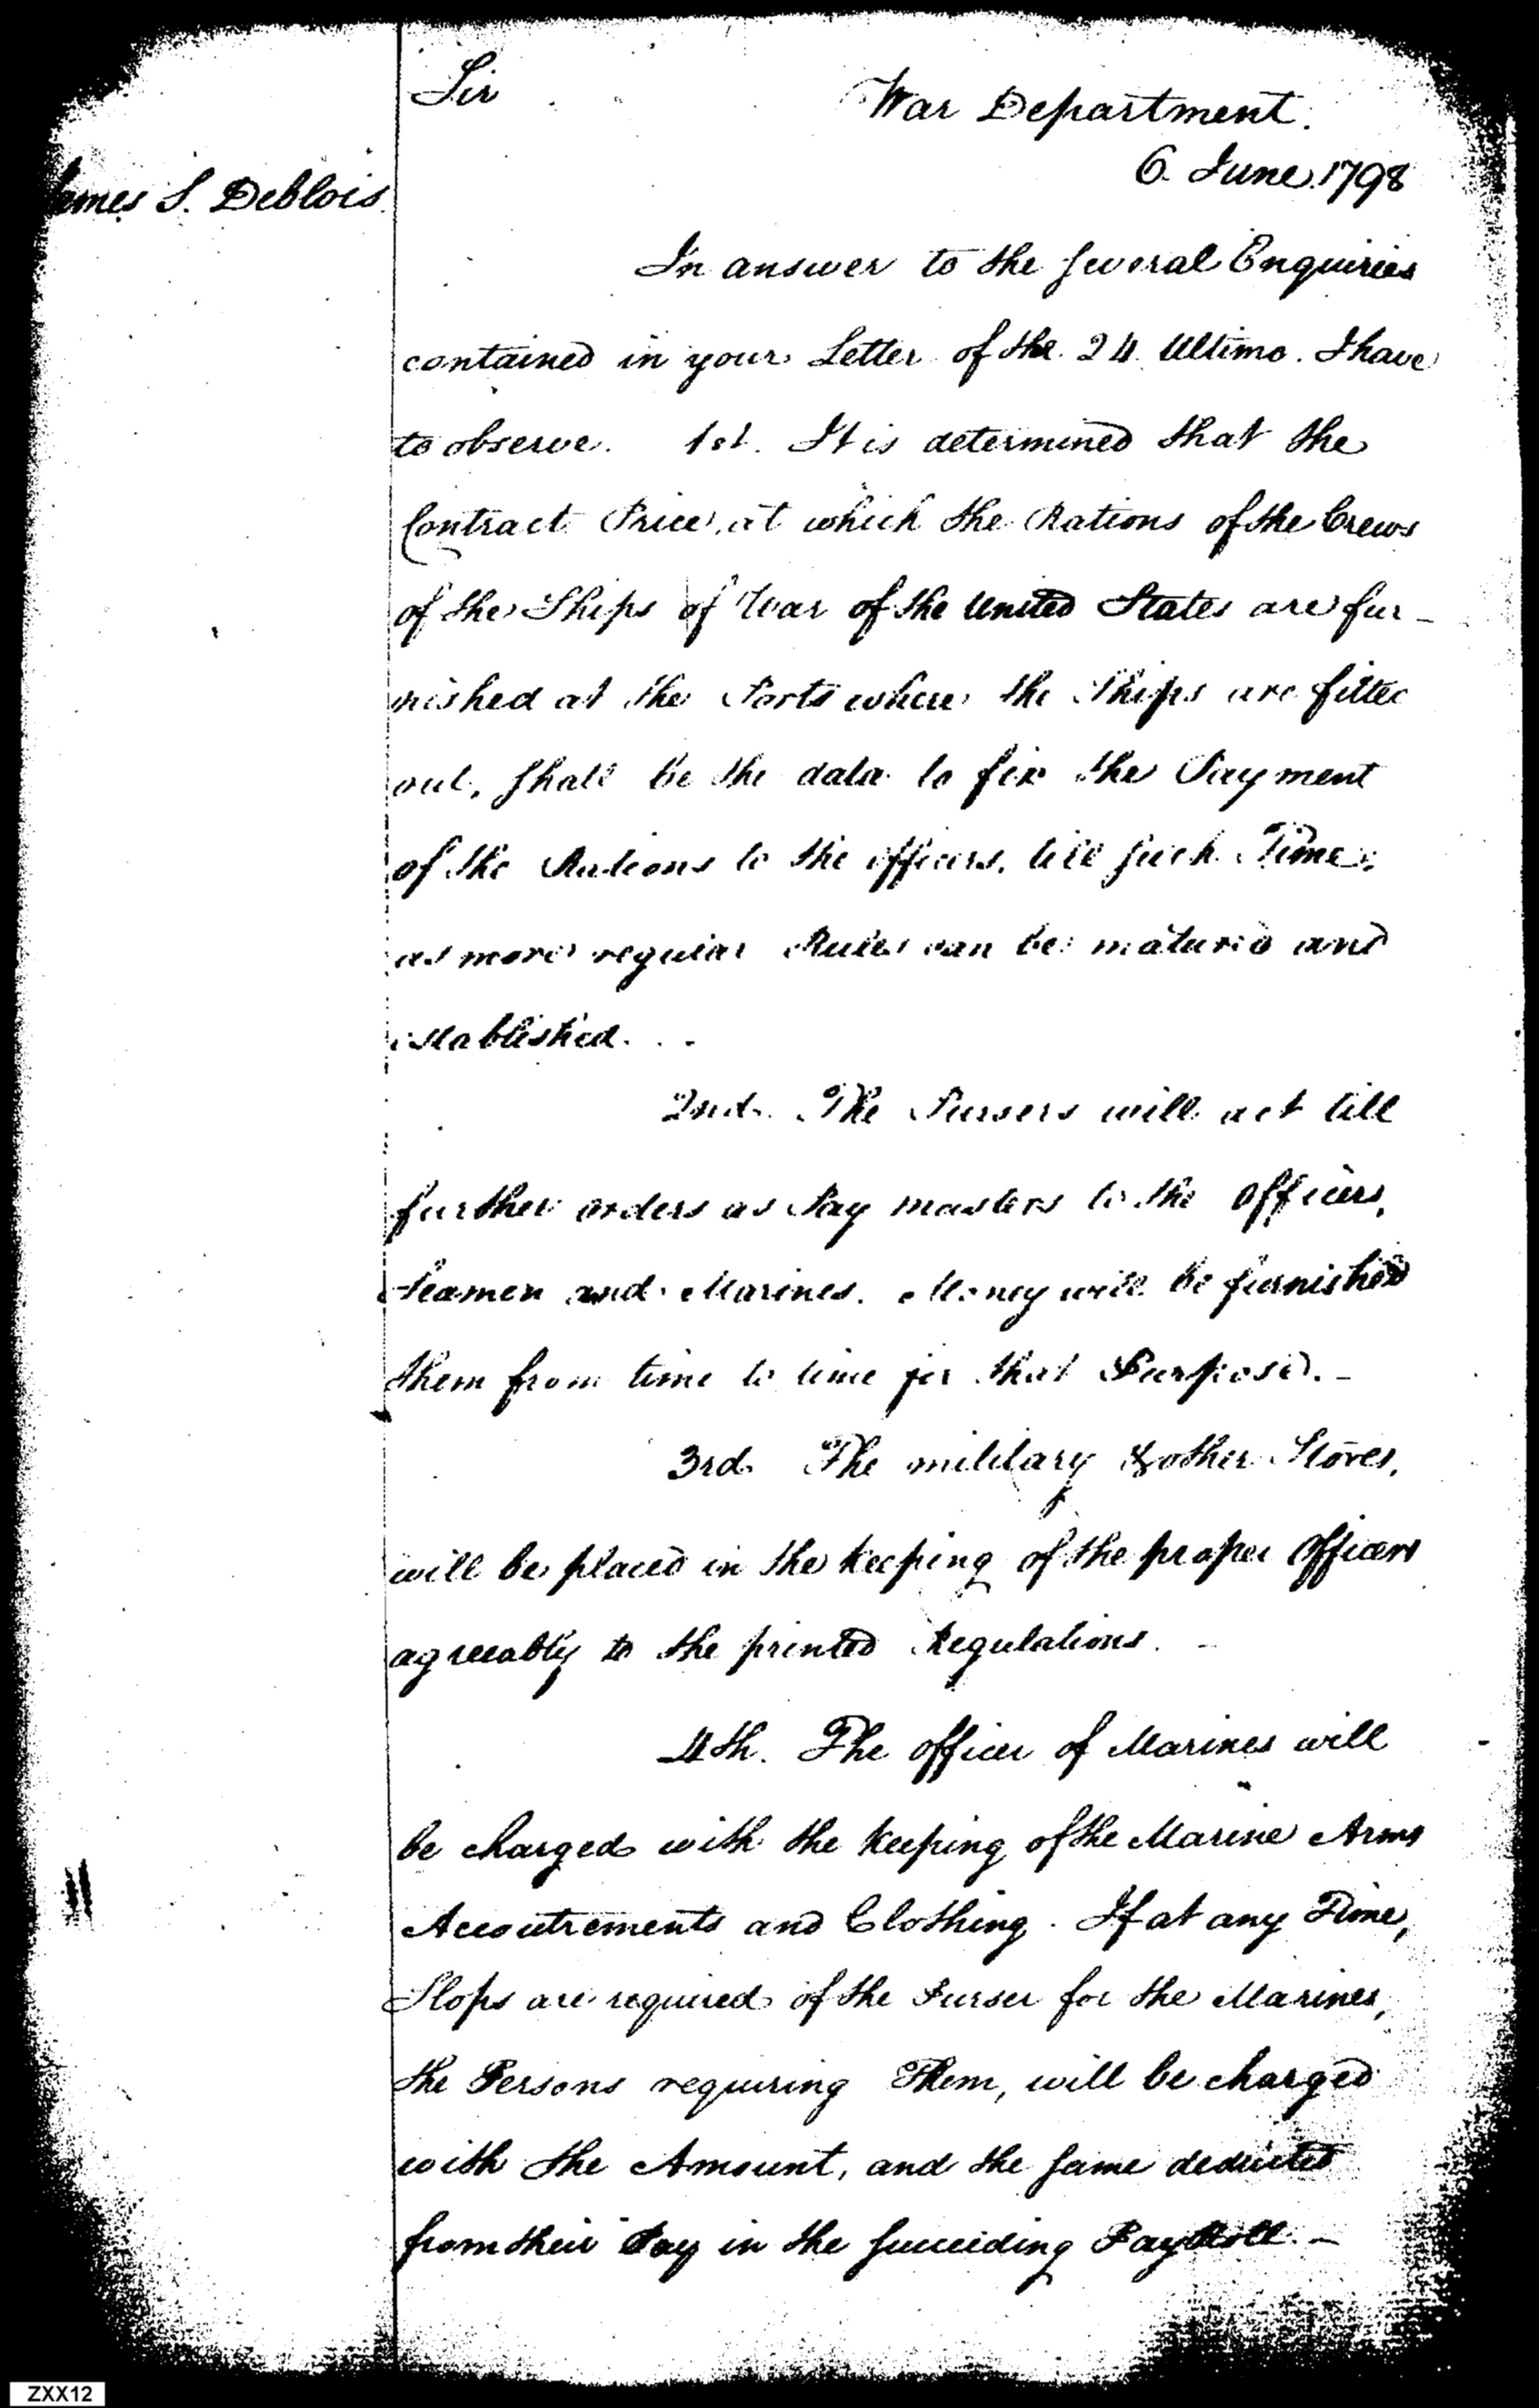 Sir
War Department.
6. June 1798
James S. Deblois.
In answer to the several Enquiries
contained in your Letter of the 24 Ultimo. I have
to observe. 1st. It is determined that the
Contract Price, at which the Rations of the Crews
of the Ships of War of the United States are fur-
nished at the Ports where the Ships are fitted
out, shall be the data to fix the Payment
of the Rations to the officers, till such Time,
as more regular Rules can be matured and
established. . -
2nd. The Pursers will act till
further orders as Pay masters to the officers,
Seamen and Marines. Money will be furnished
them from time to time for that Purpose. -
3rd. The military & other Stores,
will be placed in the keeping of the proper Officers
agreeably to the printed Regulations. -
4th. The officer of Marines will
be charged with the keeping of the Marine Arms
Accoutrements and Clothing. If at any Time,
Slops are required of the Purser for the Marines,
the Persons requiring Them, will be charged
with the Amount, and the same deducted
from their Pay in the succeeding Pay Roll. -
ZXX12